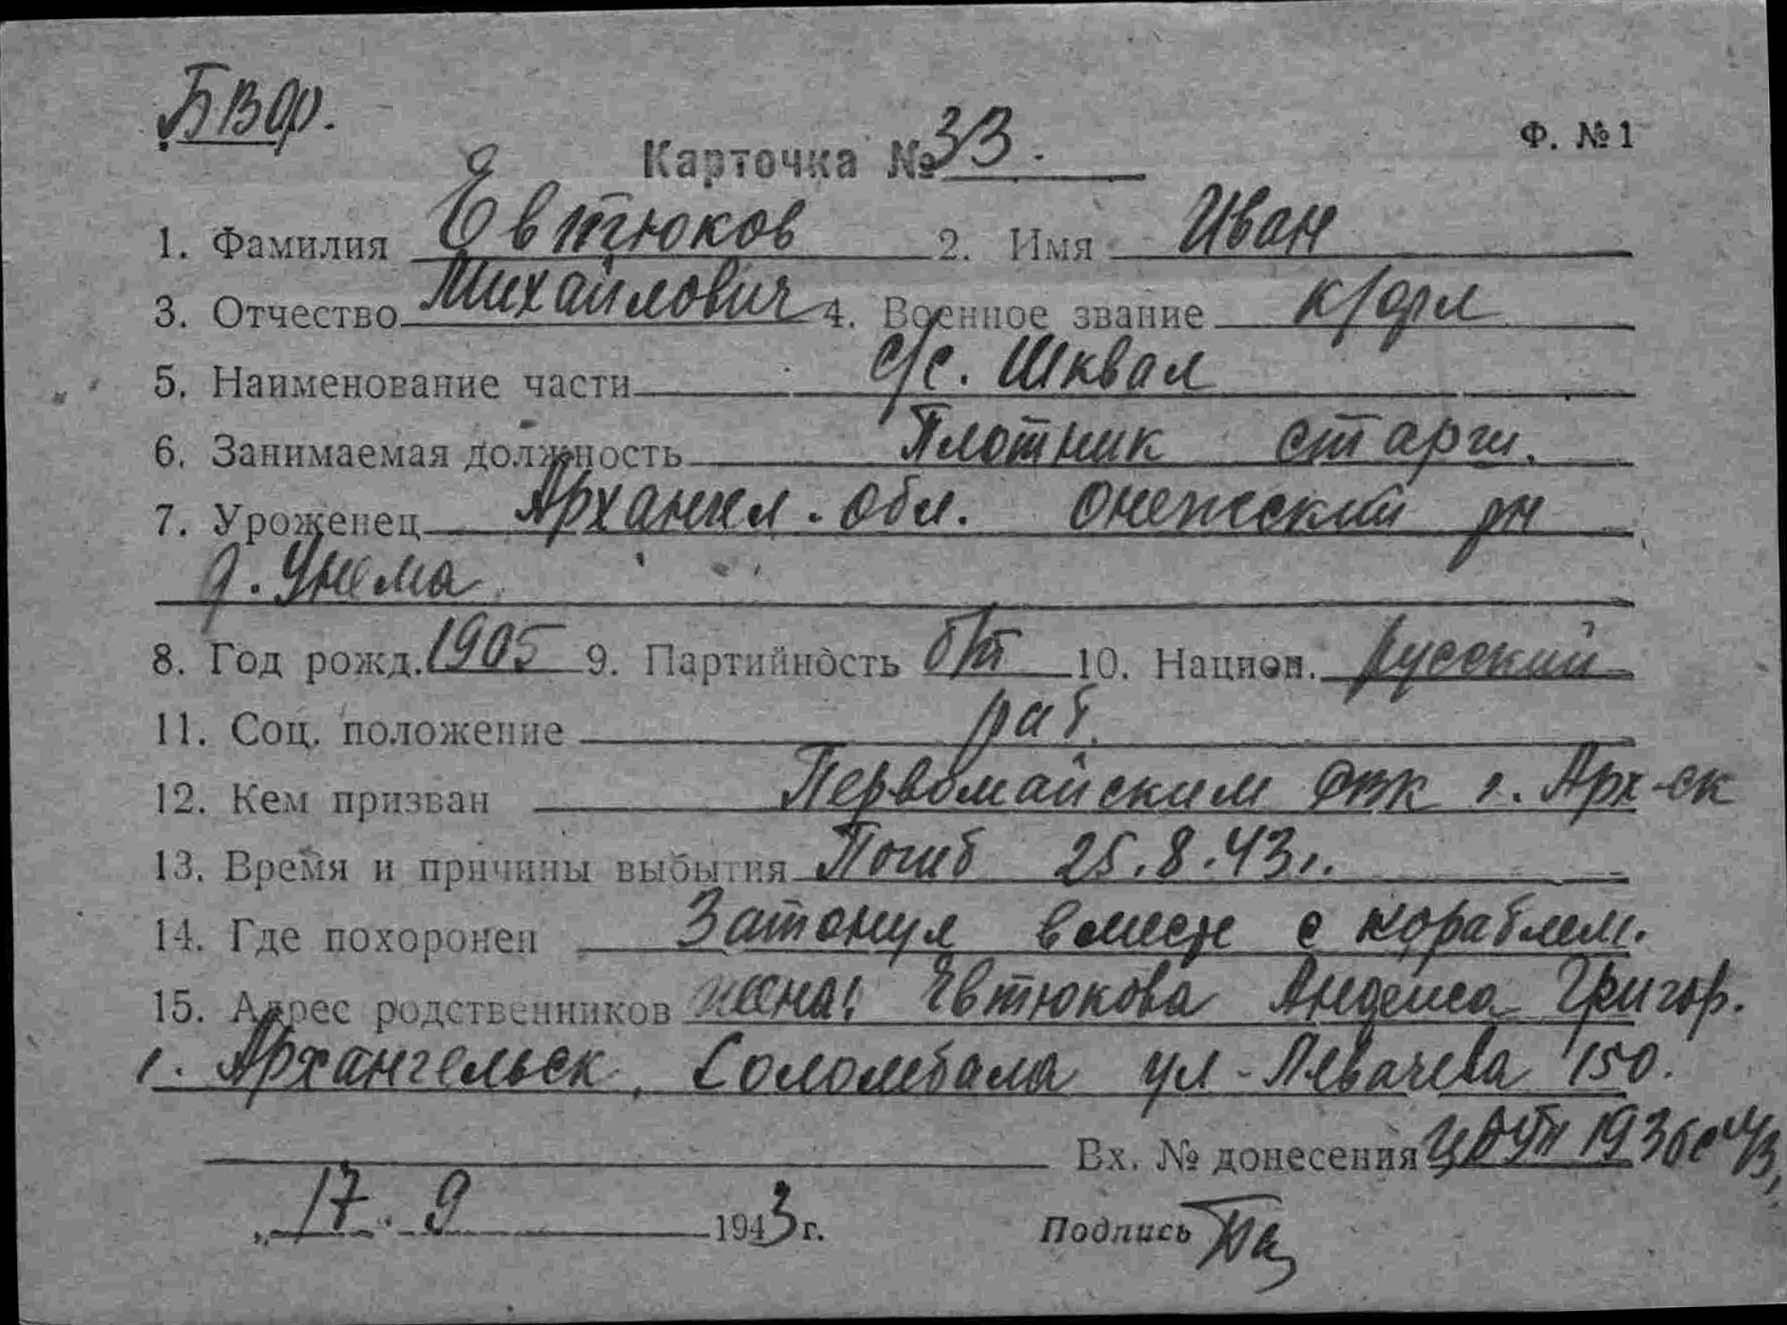 БВФ.
Ф. №1
Карточка № 33.
1. Фамилия Евтюков 2. Имя Иван
3. Отчество Михайлович 4. Военное звание к/фл
5. Наименование части с/с. Шквал
6. Занимаемая должность Плотник старш.
7. Уроженец Архангел. обл. Онежский рн
д. Унежма
8. Год рожд. 1905 9. Партийность б/п 10. Национ. русский
11. Соц. положение раб.
12. Кем призван Первомайским РВК г. Арх-ск
13. Время и причины выбытия Погиб 25.8.43г.
14. Где похоронен Затонул вместе с кораблем.
15. Адрес родственников жена: Евтюкова Григор.
г. Архангельск, Соломбала ул-Левачева 150.
Вх. № донесения 1936с
„17. 9 1943 г. Подпись